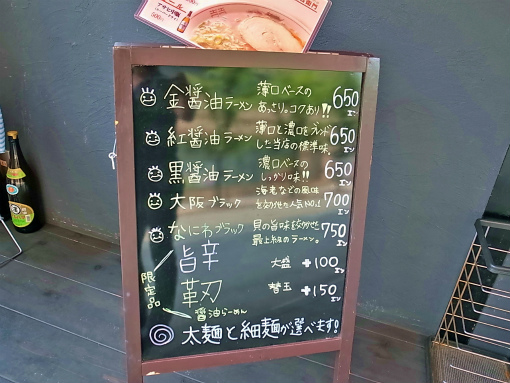 金醤油ラーメン 薄口ベースの
あっさり。コクあり!! 650エン
紅醤油ラーメン 薄口と濃口をブレンド
した当店の標準味。 650エン
黒醤油ラーメン 濃口ベースの
しっかり味!! 650エン
大阪ブラック 海老などの風味
を効かせた人気NO.1 700エン
なにわブラック 貝の旨味を効かせた
最上級のラーメン。 750エン
限定品
旨辛
靭
醤油らーめん
大盛 +100エン
替玉 +150エン
太麺と細麺が選べます!